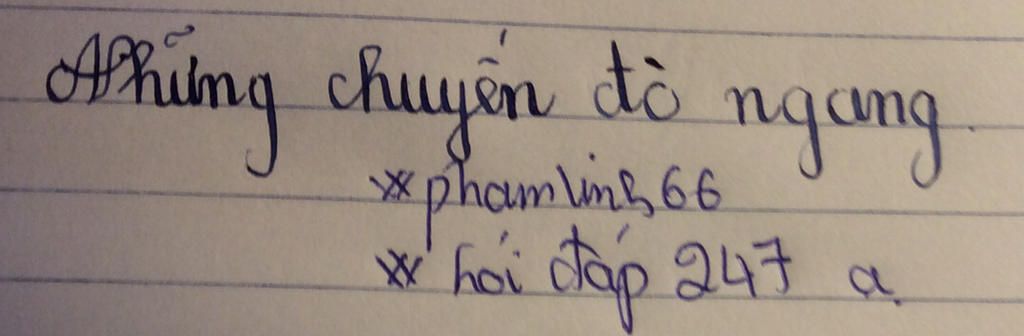 Những chuyến đò ngang.
** phamlinh66
** hỏi đáp 247 a.